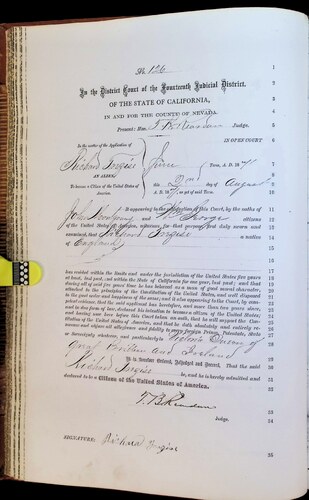 No. 126
In the District Court of the Fourteenth Judicial District.
OF THE STATE OF CALIFORNIA,
IN AND FOR THE COUNTY OF NEVADA.
Present: Hon. T B. Reardon Judge.
IN OPEN COURT
In the matter of the Application of
Richard
AN ALIEN,
To become a Citizen of the United States of
America.
June Term, A. D. 187
this 2nd day of August
A. D. 187 as yet of said Term.
It appearing to the satisfaction of this Court, by the oaths of
John and George citizens
of the United States of America, witnesses for that purpose, first duly sworn and
examined, that Richard a native
of England
has resided within the limits and under the jurisdiction of the United States five years
at least, last past, and within the State of California for one year, last past; and that
during all of said five years time he has behaved as a man of good moral character,
attached to the principles of the Constitution of the United States, and well disposed
to the good order and happiness of the same; and it also appearing to the Court, by
competent evidence, that the said applicant has heretofore, and more than two years since,
and in due form of law, declared his intention to become a citizen of the United States;
and having now here before this Court taken an oath, that he will support the Constitution
of the United States of America, and that he doth absolutely and entirely
renounce and abjure all allegiance and fidelity to every foreign Prince, Potentate, State
or Sovereignty whatever, and particularly to Victoria Queen of
Great Brittain and Ireland
It is therefore Ordered, Adjudged and Decreed, That the said
Richard be, and he is hereby admitted and
declared to be a Citizen of the United States of America.
T. B. Reardon
Judge.
SIGNATURE: Richard
1
2
3
4
5
6
7
8
9
10
11
12
13
14
15
16
17
18
19
20
21
22
23
24
25
26
27
28
29
30
31
32
33
34
35